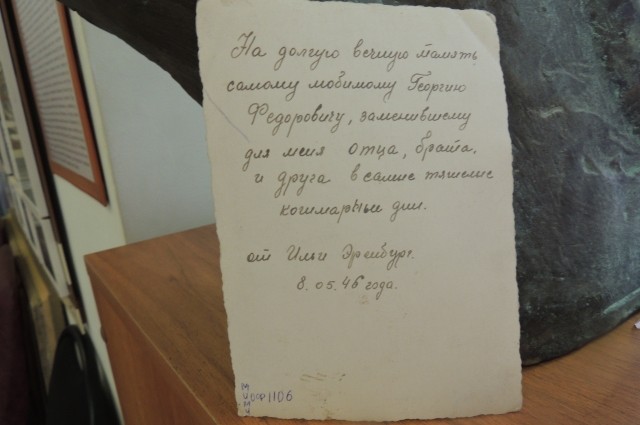 На долгую вечную память
самому любимому Георгию
Федоровичу, заменившему
для меня отца, брата,
и друга в самые тяжелые
кошмарные дни.
от Ильи Эренбург.
8.05.46 года.